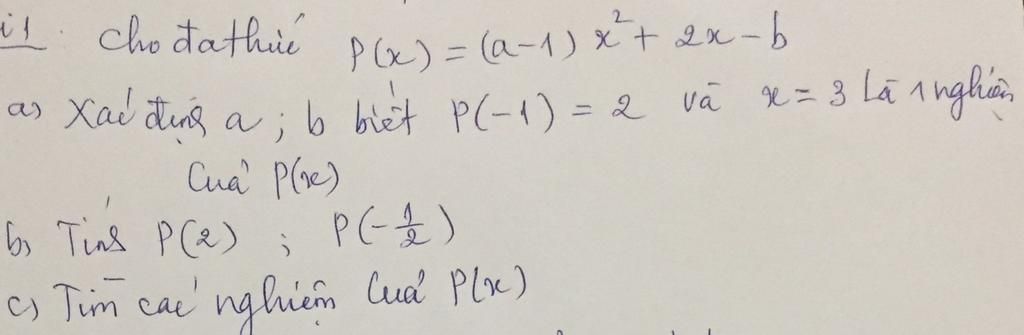 i1. Cho đa thức P(x) = (a-1) x² + 2x - b
a) Xác định a ; b biết P(-1) = 2 và x = 3 Là 1 nghiệm
Của P(x)
b) Tính P(2) ; P(-1/2)
c) Tìm các nghiệm Của P(x)